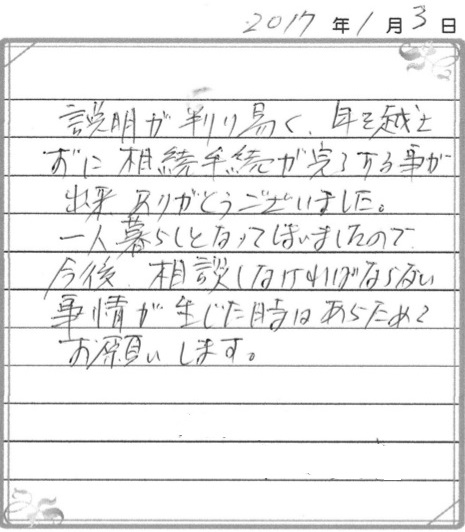 2017年1月3日
説明が判り易く、年を越さ
ずに相続手続が完了する事が
出来ありがとうございました。
一人暮らしとなってしまいましたので
今後、相談しなければならない
事情が生じた時はあらためて
お願いします。